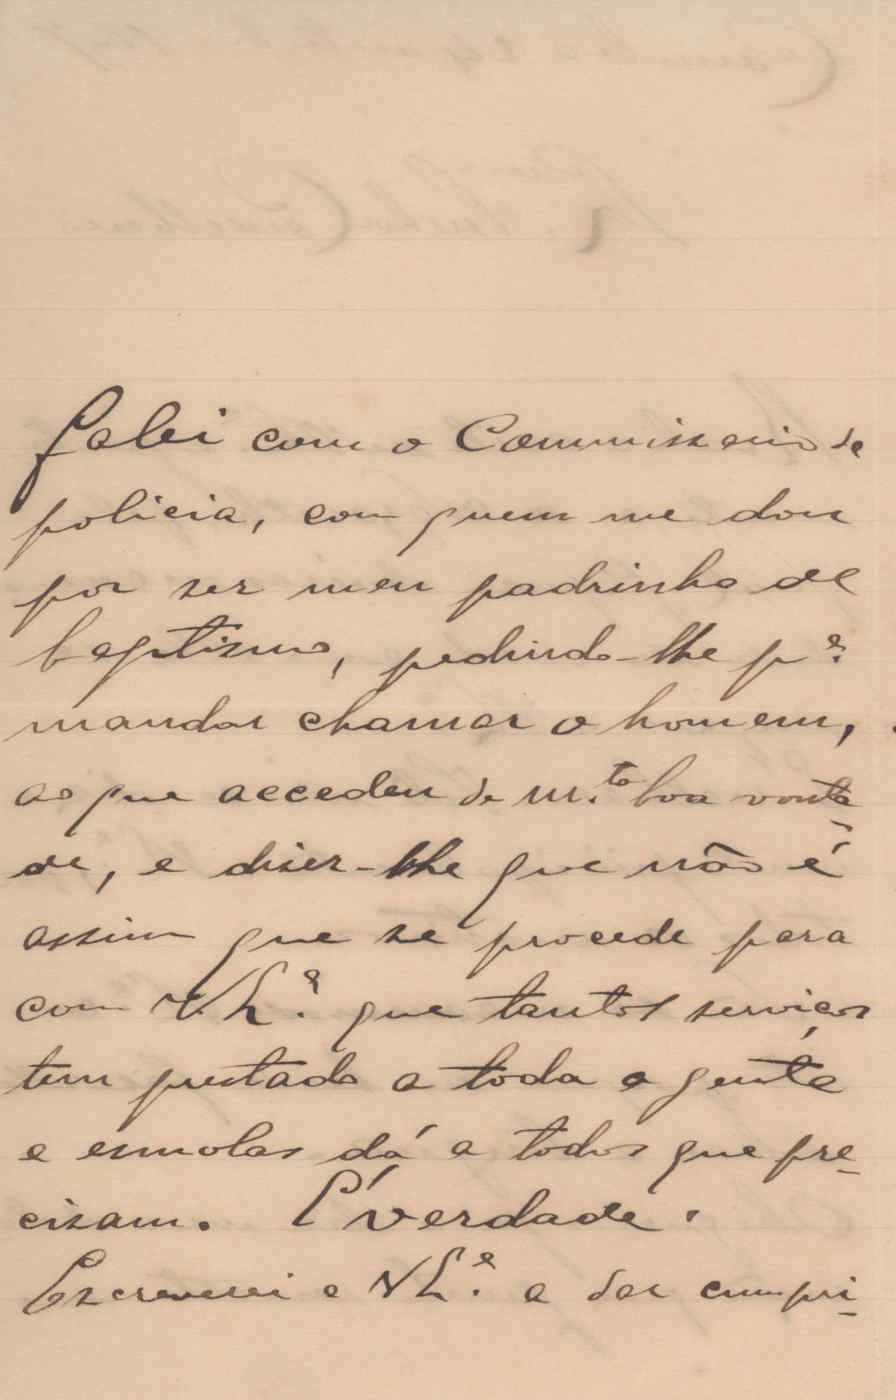 Falei com o Commissario de
policia, com quem me dou
por ser meu padrinho de
baptismo, pedindo-lhe p.ª
mandar chamar o homem,
ao que accedeu de m.to boa vonta-
de, e dizer-lhe que não é
assim que se procede para
com V. Ex.ª que tantos serviços
tem prestado a toda a gente
e esmolas dá a todos que pre-
cizam. É verdade.
Escreverei a V Ex.ª a dar cumpri-